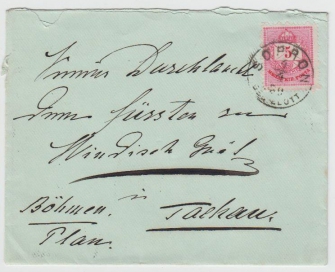 Durchlaucht
dem Fürsten zu
Windisch Grätz
in
Böhmen. Tachau.
Plan.
5
SOPRON